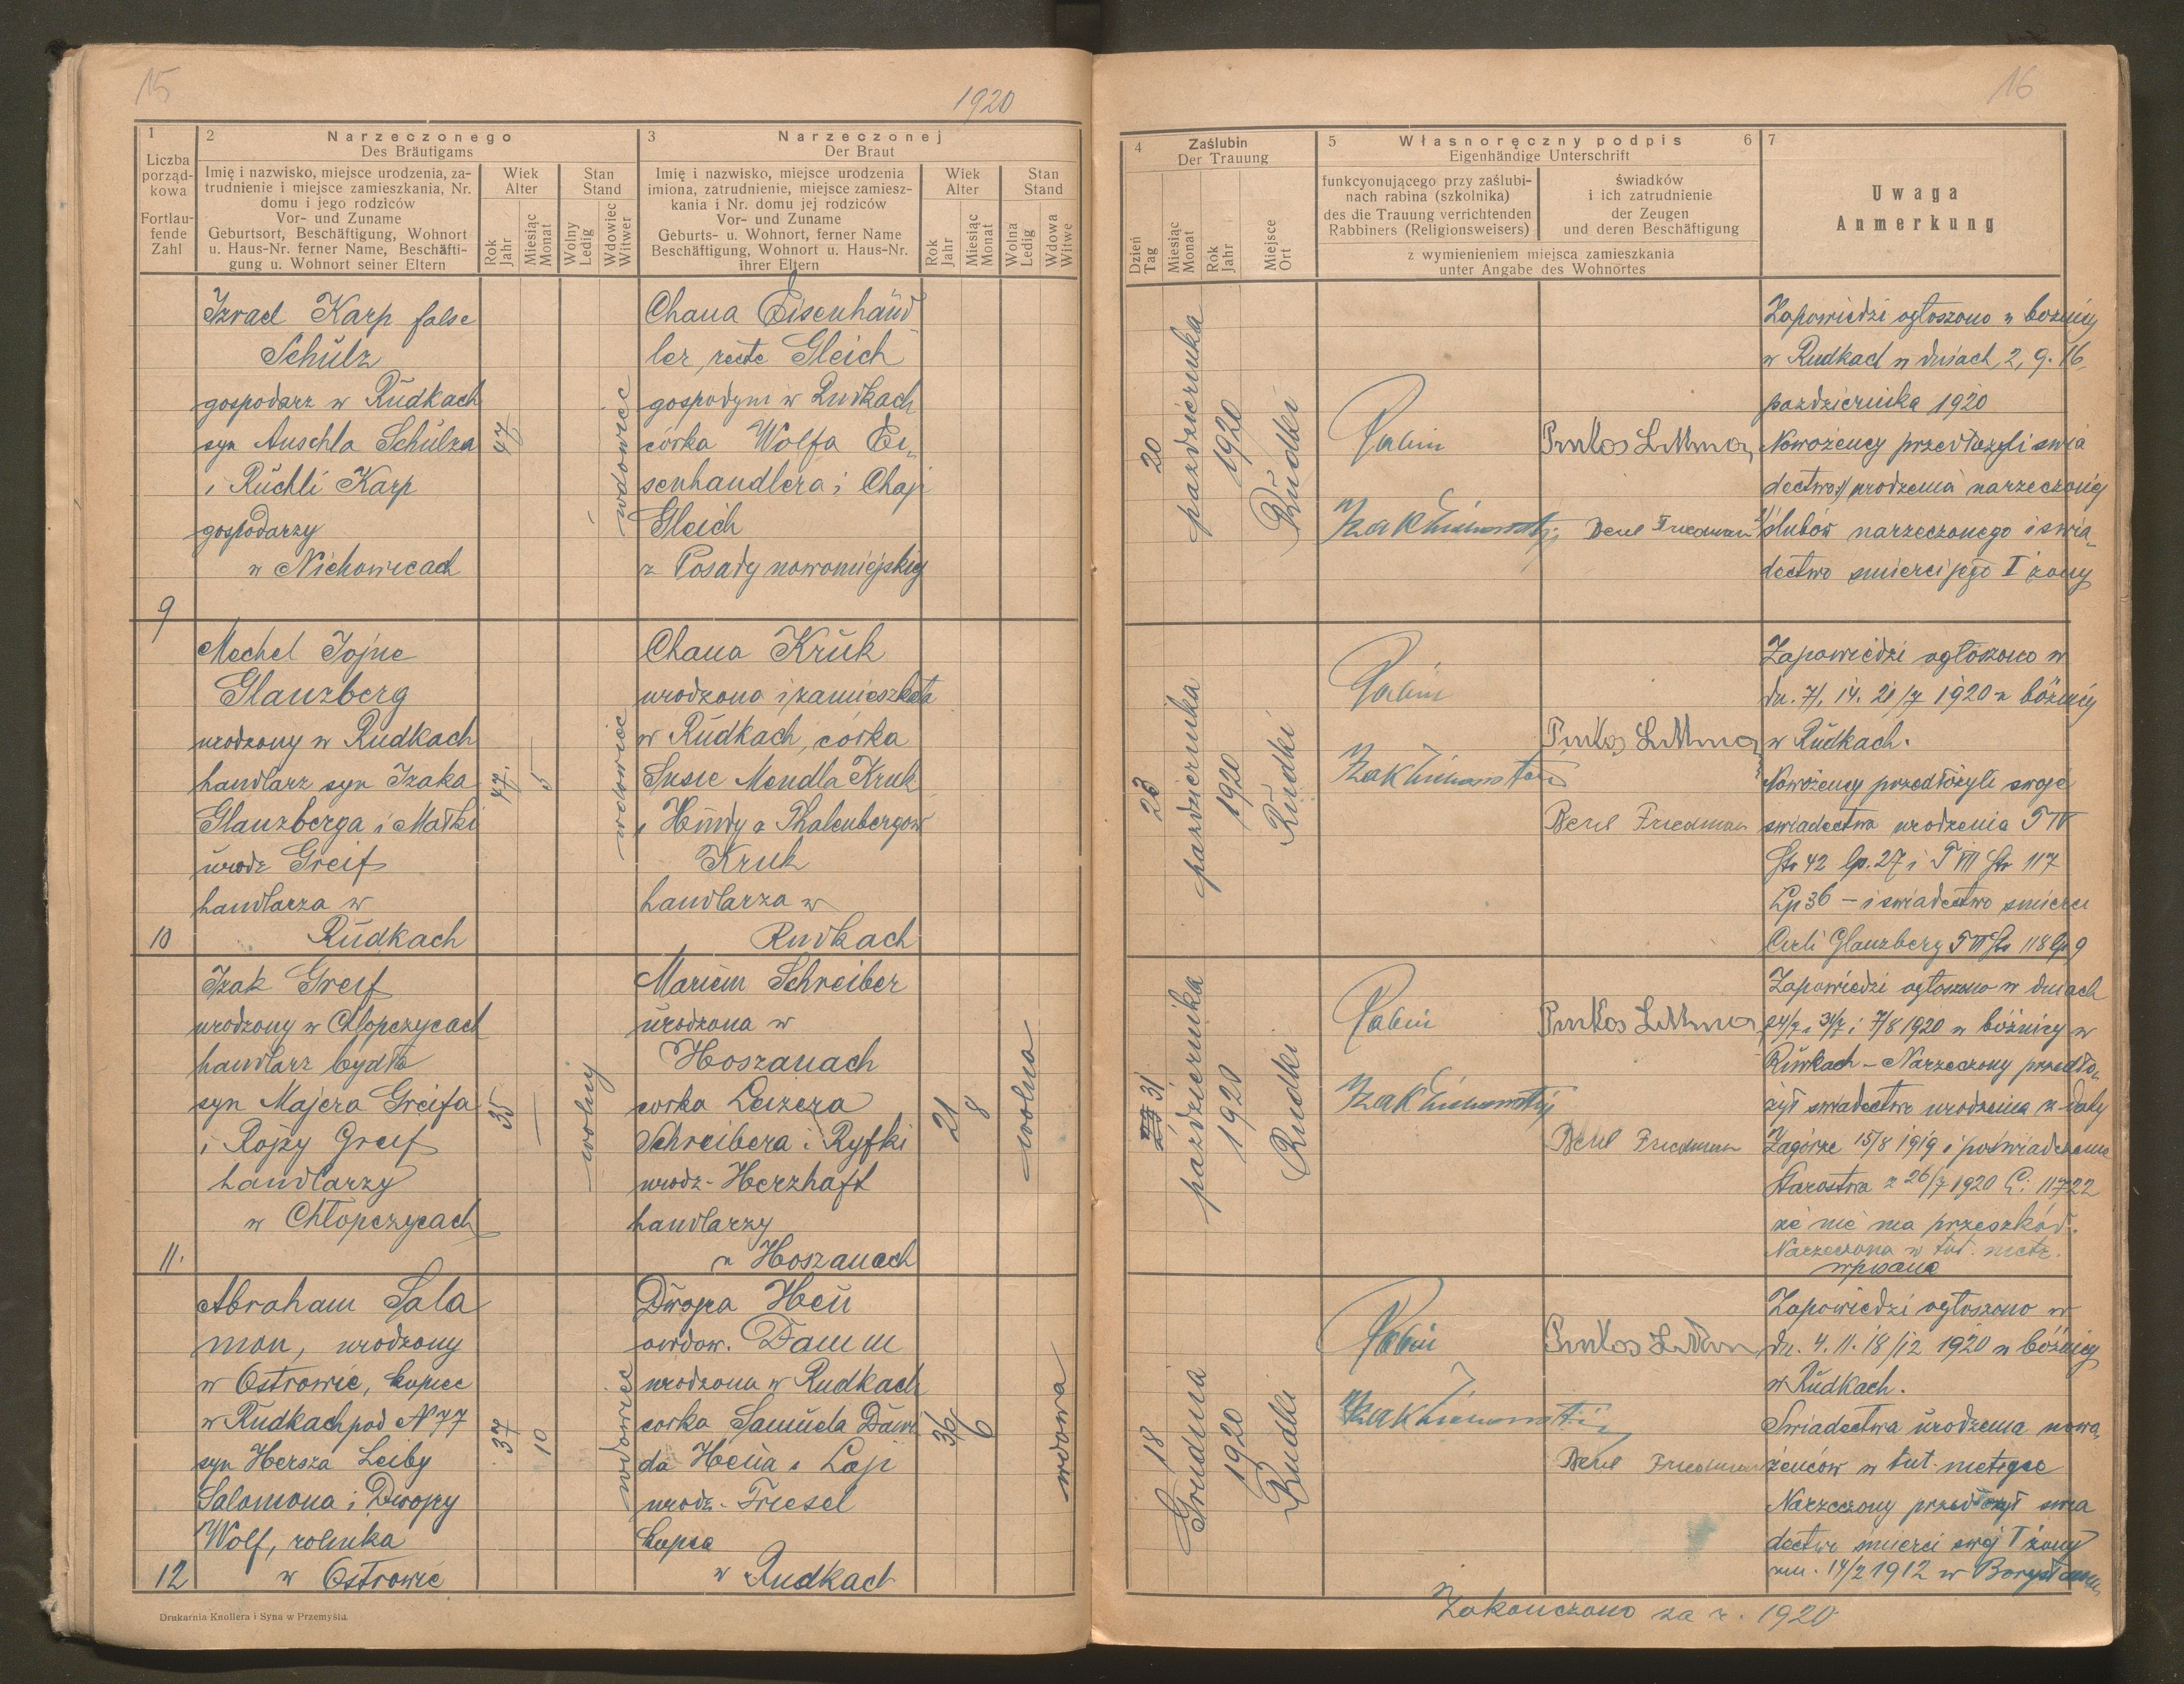 15
1920
1
Liczba
porząd-
kowa
Fortlau-
fende
Zahl
2
Narzeczonego
Des Bräutigams
Imię i nazwisko, miejsce urodzenia, za-
trudnienie i miejsce zamieszkania, Nr.
domu i jego rodziców
Vor- und Zuname
Geburtsort, Beschäftigung, Wohnort
u. Haus-Nr. ferner Name, Beschäfti-
gung u. Wohnort seiner Eltern
Wiek
Alter
Rok
Jahr
Miesiąc
Monat
Stan
Stand
Wolny
Ledig
Wdowiec
Witwer
3
Narzeczonej
Der Braut
Imię i nazwisko, miejsce urodzenia
imiona, zatrudnienie, miejsce zamiesz-
kania i Nr. domu jej rodziców
Vor- und Zuname
Geburts- u. Wohnort, ferner Name
Beschäftigung, Wohnort u. Haus-Nr.
ihrer Eltern
Wiek
Alter
Rok
Jahr
Miesiąc
Monat
Stan
Stand
Wolna
Ledig
Wdowa
Witwe
Izrael Karp false
Schulz
gospodarz w Rudkach
syn Anschla Schulza
i Ruchli Karp
gospodarzy
w Nichowicach
9
47
wdowiec
Chana Eisenhänd
ler, recte Gleich
gospodyni w Rudkach
córka Wolfa Ei„
senhandlera i Chaji
Gleich
z Posady nowomiejskiej
Mechel Jojne
Glanzberg
urodzony w Rudkach
handlarz syn Izaka
Glanzberga i Małki
urodz Greif
handlarza w
Rudkach
10
47.
5
wdowiec
Chana Kruk
urodzona i zamieszkała
w Rudkach, córka
Susie Mendla Kruk
i Hindy z Thalenbergow
Kruk
handlarza w
Rudkach
Izak Greif
urodzony w Chłopczycach
handlarz bydła
syn Majera Greifa
i Rojzy Greif
handlarzy
w Chłopczycach
11.
35
—
wolny
Mariem Schreiber
urodzona w
Hoszanach
corka Leizera
Schreibera i Ryfki
urodz- Herzhaft
handlarzy
w Hoszanach
21
8
wolna
Abraham Sala
mon, urodzony
w Ostrowie, kupiec
w Rudkach pod N 77
syn Hersza Leiby
Salomona i Dwojry
Wolf, rolnika
w Ostrowie
12
37
10
wdowiec
Dwojra Heu
owdow. Damm
urodzona w Rudkach
corka Samuela Dawi
da Heua i Leji
urodz- Friesel
kupca
w Rudkach
36
6
wdowa
Drukarnia Knollera i Syna w Przemyślu.
16
4
Zaślubin
Der Trauung
Dzień
Tag
Miesiąc
Monat
Rok
Jahr
Miejsce
Ort
5
Własnoręczny podpis
6
Eigenhändige Unterschrift
funkcyonującego przy zaślubi-
nach rabina (szkolnika)
des die Trauung verrichtenden
Rabbiners (Religionsweisers)
świadków
i ich zatrudnienie
der Zeugen
und deren Beschäftigung
z wymienieniem miejsca zamieszkania
unter Angabe des Wohnortes
7
Uwaga
Anmerkung
20
pazdziernika
1920
Rudki
Rabin
Pinkos Littman
Berl Friedman
Zapowiedzi ogłoszono w bożnicy
w Rudkach w dniach, 2, 9. 16,
pazdziernika 1920
Nowożency przedłożyli świa
dectwo urodzenia narzeczonej
ślubów narzeczonego i świa„
dectwo smierci jego I żony
23
pazdziernika
1920
Rudki
Rabin
Pinkos Littman
Berl Friedman
Zapowiedzi ogłoszono w
dn. 7/. 14. 21/7 1920 w bóżnicy
w Rudkach.
Nowożency przedłożyli swoje
swiadectwa urodzenia T IV
Str 42 lp. 27 i T VII Str 117
Lp 36 – i swiadectwo smierci
Cirli Glanzberg T VI Str 118 Lp 9
31
pazdziernika
1920
Rudki
Rabin
Pinkos Littman
Berl Friedman
Zapowiedzi ogłoszono w dniach
24/7 i 31/7 i 7/8 1920 w bóżnicy w
Rudkach – Narzeczony przedło„
żył swiadectwo urodzenia z daty
Zagórze 15/8 1919 i poświadczenie
Starostwa z 26/7 1920 L: 11722
że nie ma przeszkód.
Narzeczona w tut. metr.
wpisana
18
Grudnia
1920
Rudki
Rabin
Pinkos Littman
Berl Friedman
Zapowiedzi ogłoszono w
dn. 4. 11. 18/12 1920 w bóżnicy
w Rudkach.
Swiadectwa urodzenia nowo„
żeńców w tut. metryce
Narzeczony przedłożył swia
dectwo śmierci swej I żony
zm. 14/2 1912 w Borysławiu
Zakonczono za r. 1920